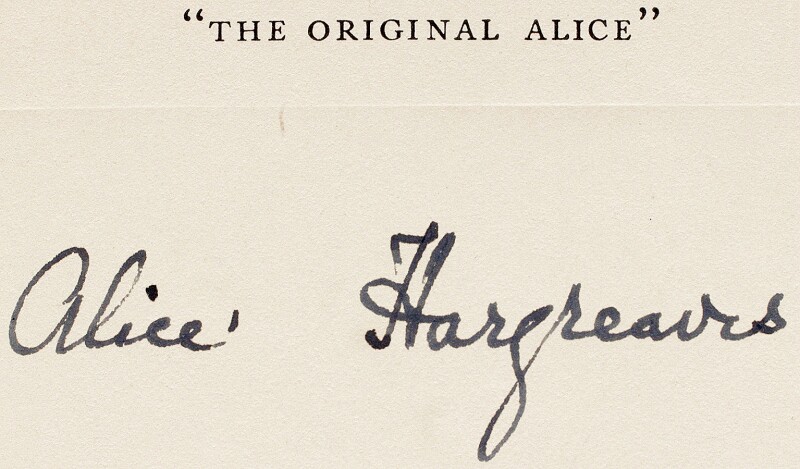 “THE ORIGINAL ALICE”
Alice Hargreaves